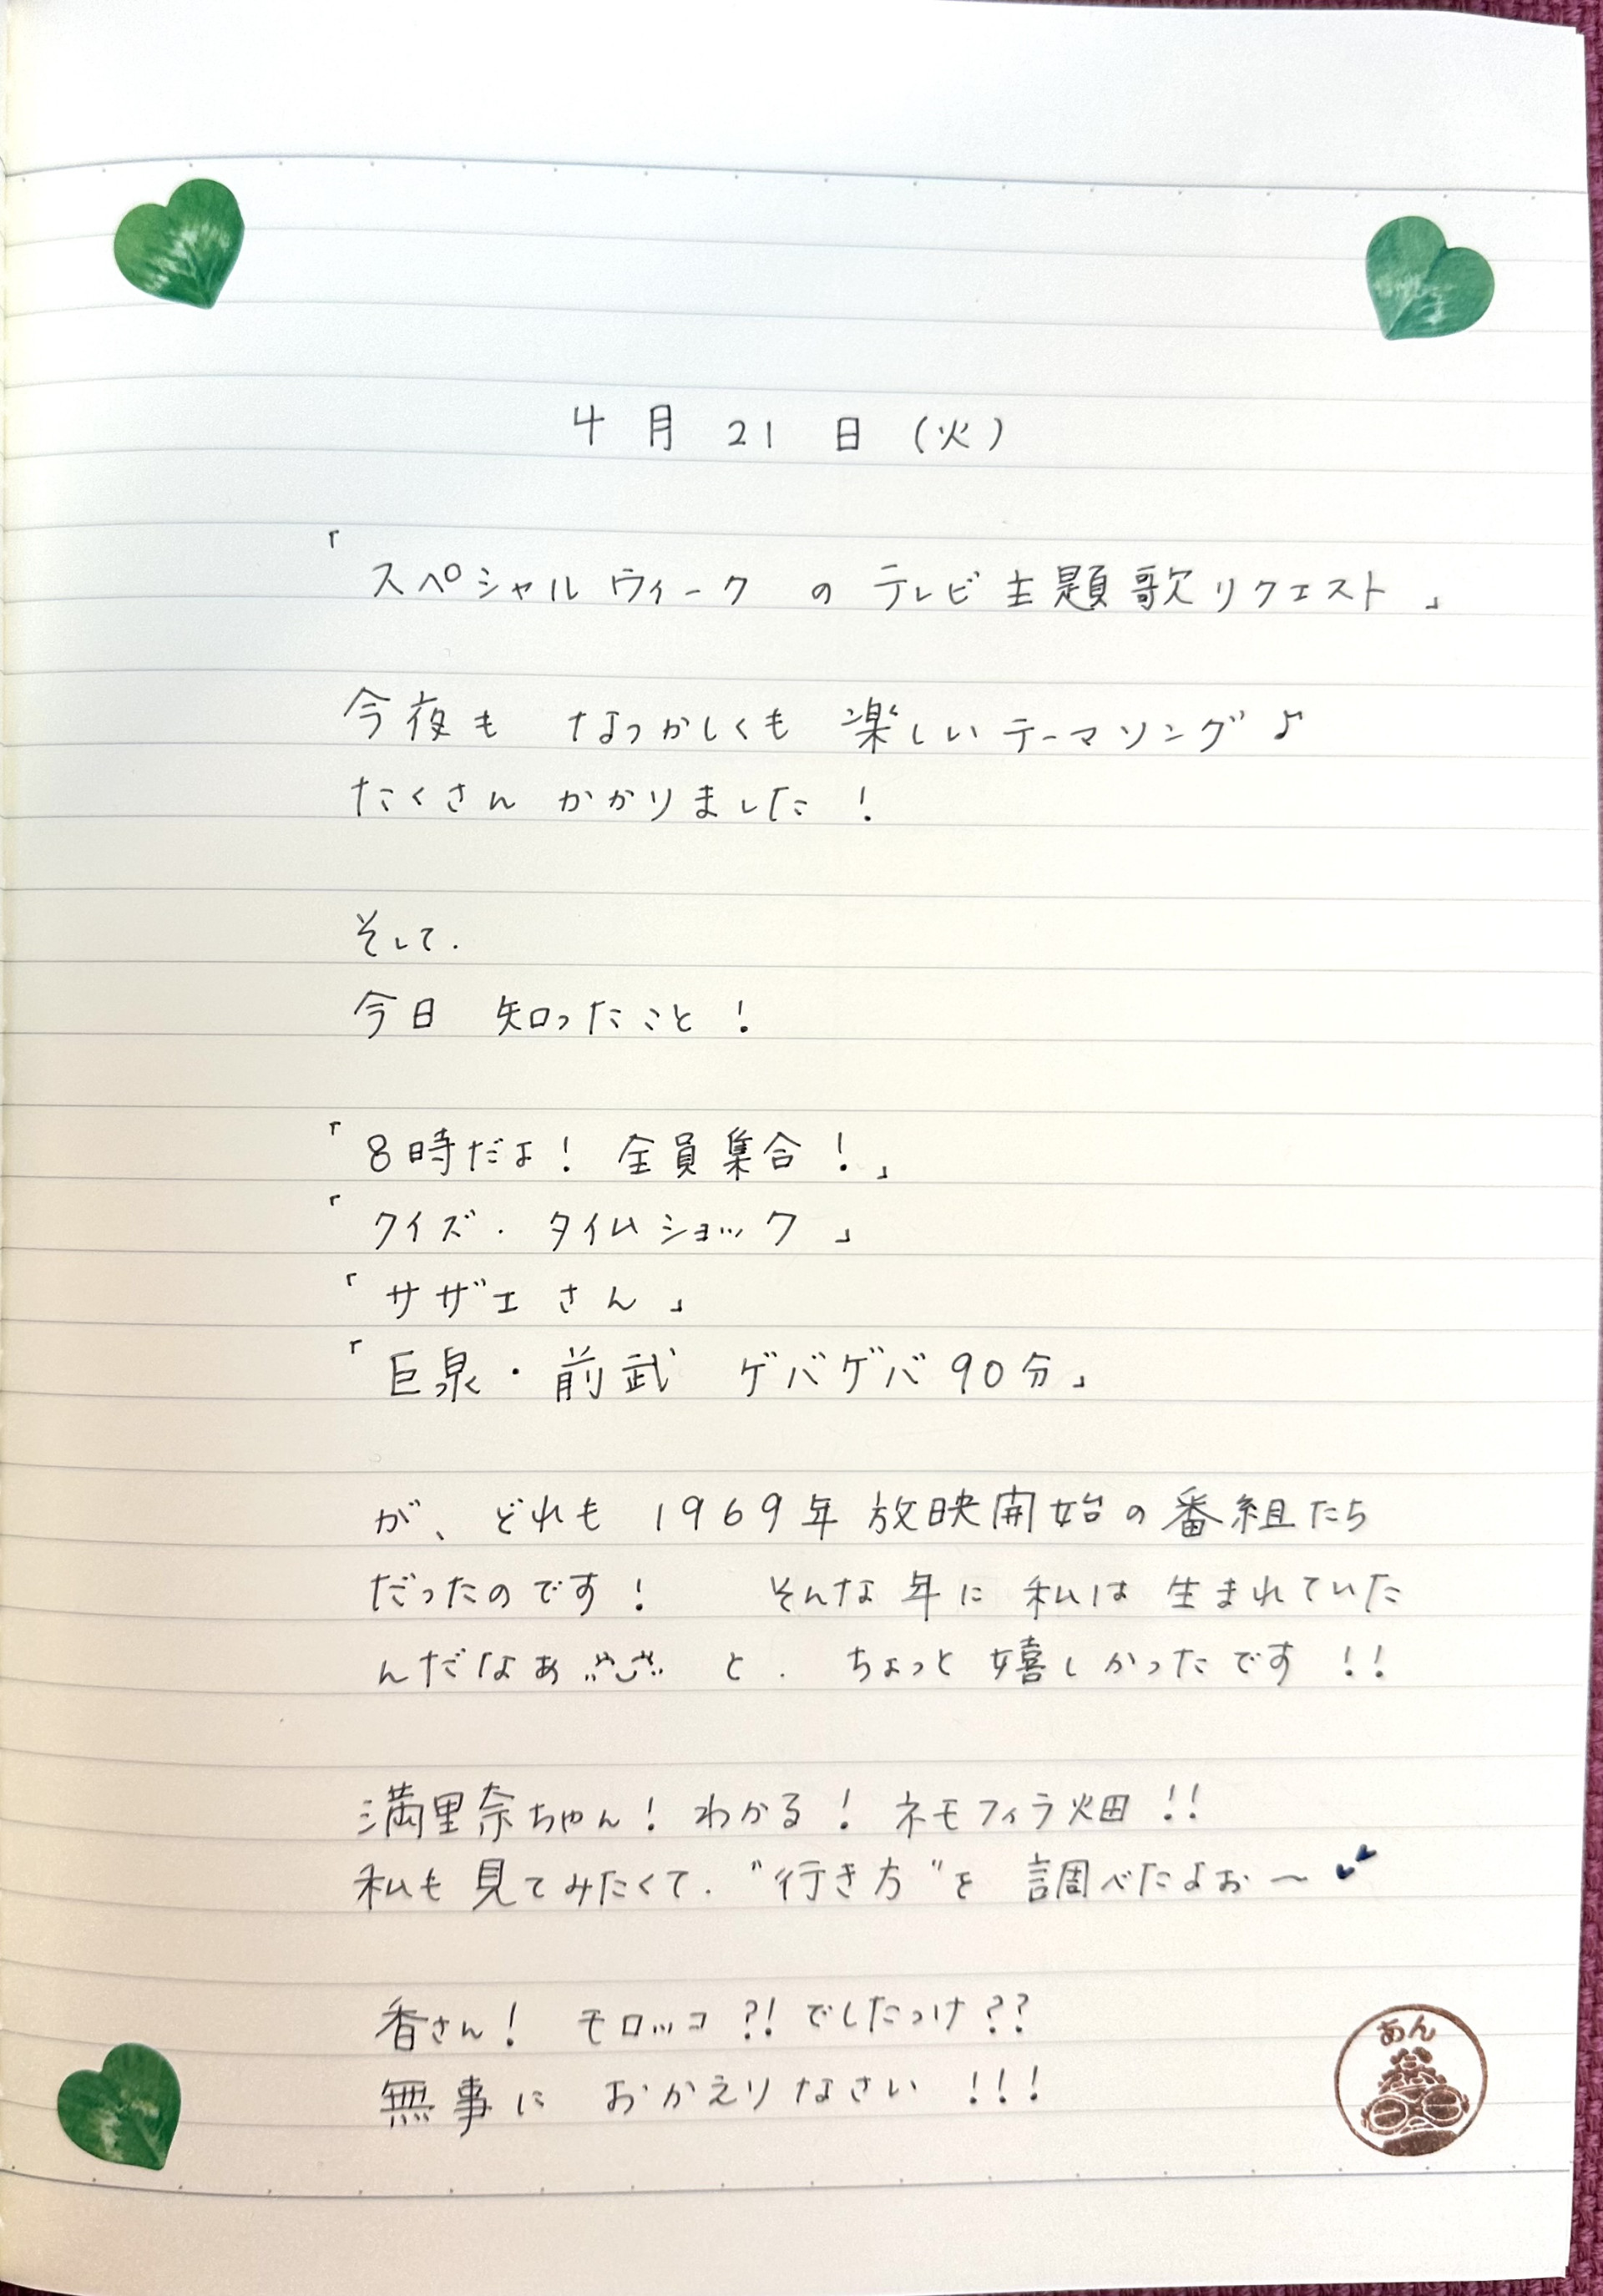 4月21日(火)
「スペシャルウィークのテレビ主題歌リクエスト」
今夜も なつかしくも 楽しいテーマソング♪
たくさん かかりました!
そして.
今日 知ったこと!
「8時だよ! 全員集合!」
「クイズ・タイムショック」
「サザエさん」
「巨泉・前武 ゲバゲバ90分」
が、どれも 1969年放映開始の番組たち
だったのです! そんな年に 私は 生まれていた
んだなぁ と. ちょっと嬉しかったです!!
満里奈ちゃん! わかる! ネモフィラ畑!!
私も見てみたくて. “行き方”を 調べたよぉ〜
香さん! モロッコ?! でしたっけ??
無事に おかえりなさい!!!
あん